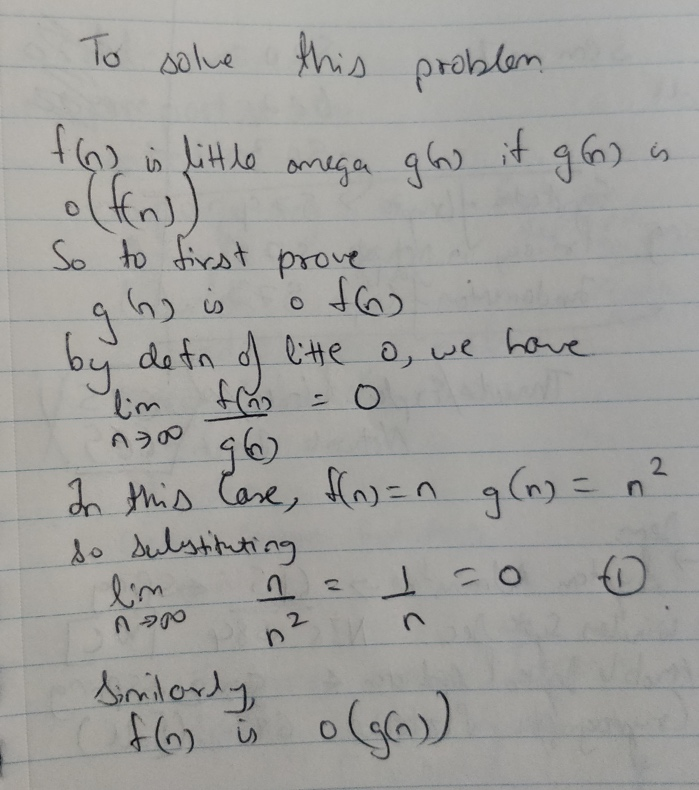 To solve this problem
f(n) is little omega g(n) if g(n) is
o(f(n))
So to first prove
g(n) is o f(n)
by defn of litte o, we have
lim n→∞ f(n)/g(n) = 0
In this Case, f(n) = n g(n) = n²
so substituting
lim n→∞ n/n² = 1/n = 0 ①
Similarly,
f(n) is o(g(n))